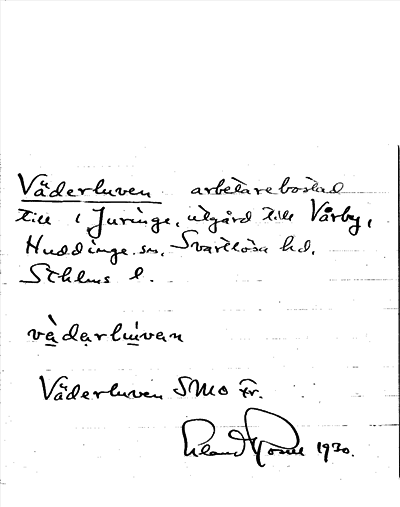 Väderluven arbetarebostad
till 1 Juringe, utgård till Vårby,
Huddinge sn, Svartlösa hd,
Sthlms l.
vä̀darlu̇van
Väderluven SMO Fr.
1930.